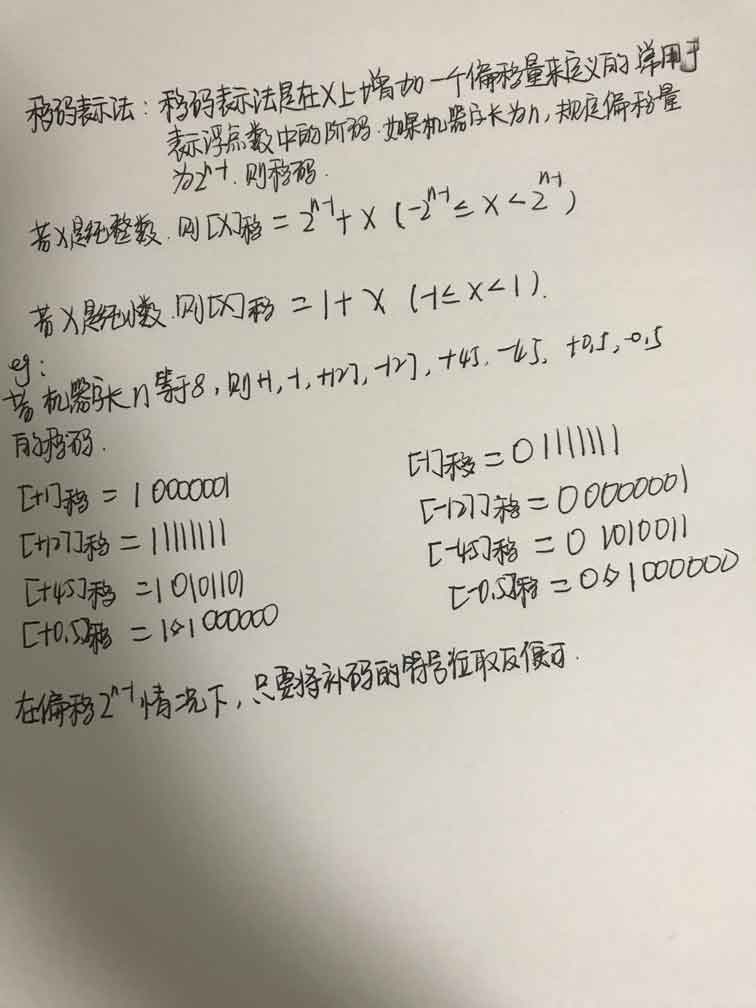 移码表示法：移码表示法是在X上增加一个偏移量来定义的常用于
表示浮点数中的阶码.如果机器字长为n,规定偏移量
为2^{n-1}.则移码.
若X是纯整数.则[X]移 = 2^{n-1} + X (-2^{n-1} ≤ X < 2^{n-1})
若X是纯小数.则[X]移 = 1 + X (-1 ≤ X < 1).
eg:
若机器字长n等于8,则+1,-1,+127,-127,+45,-45,+0.5,-0.5
的移码.
[+1]移 = 1 0000001 [-1]移 = 0 1111111
[+127]移 = 1 1111111 [-127]移 = 0 0000001
[+45]移 = 1 0101101 [-45]移 = 0 1010011
[+0.5]移 = 1◇1000000 [-0.5]移 = 0◇1000000
在偏移2^{n-1}情况下,只要将补码的符号位取反便可.